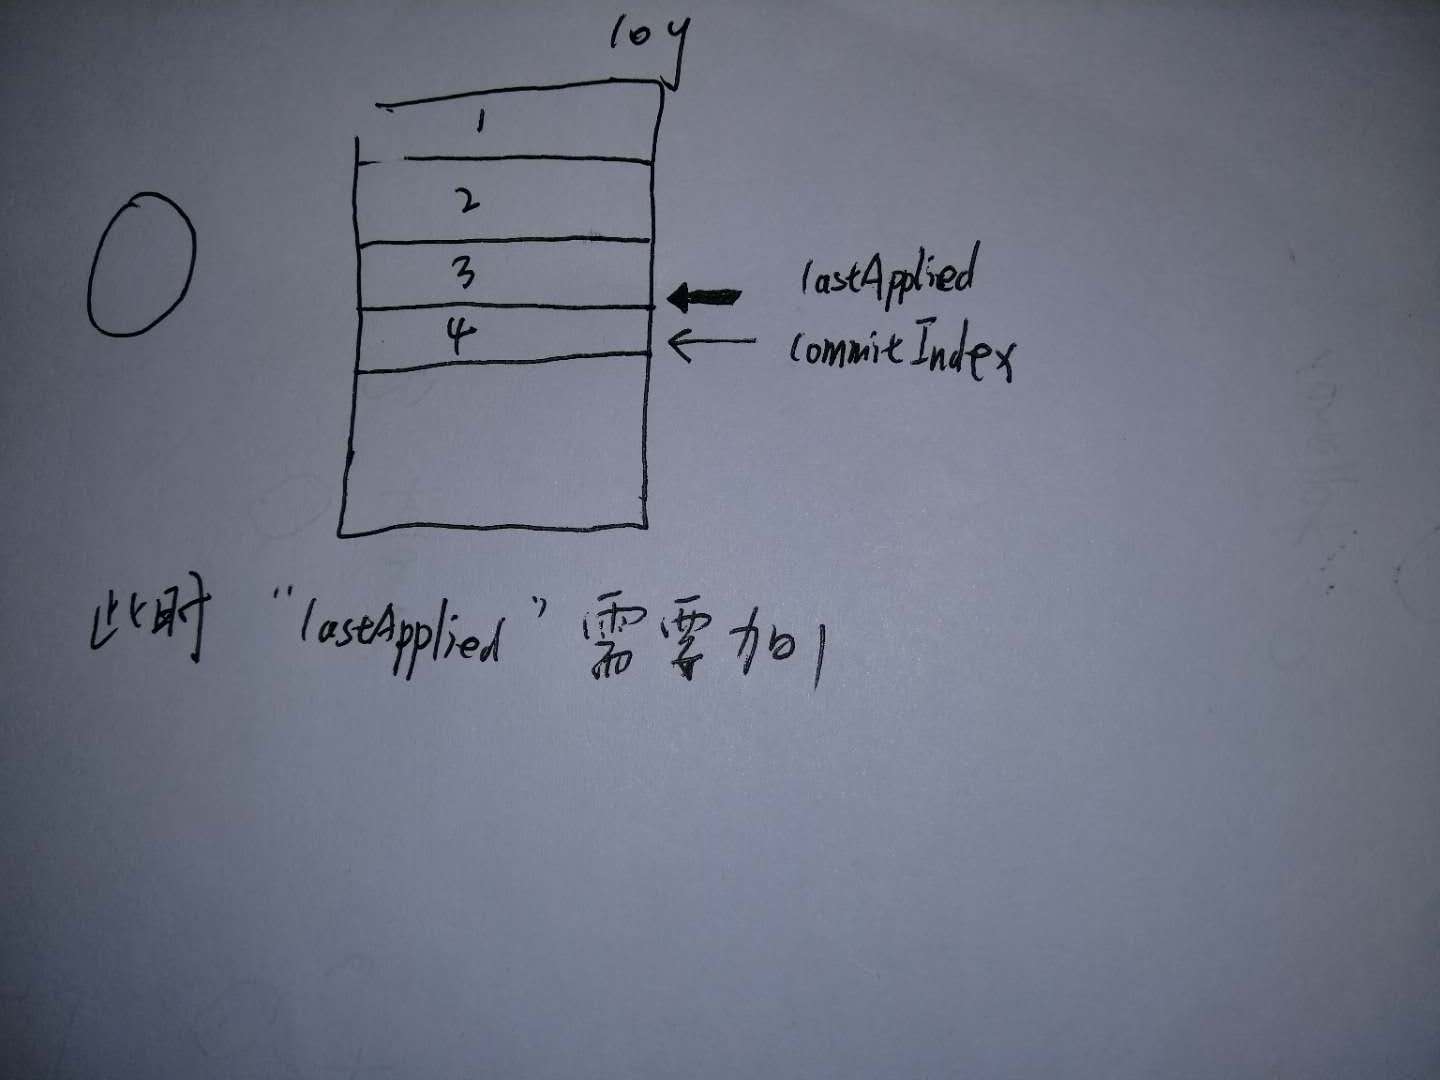 log
1
2
3
lastApplied
4
commitIndex
此时 “lastApplied” 需要加1